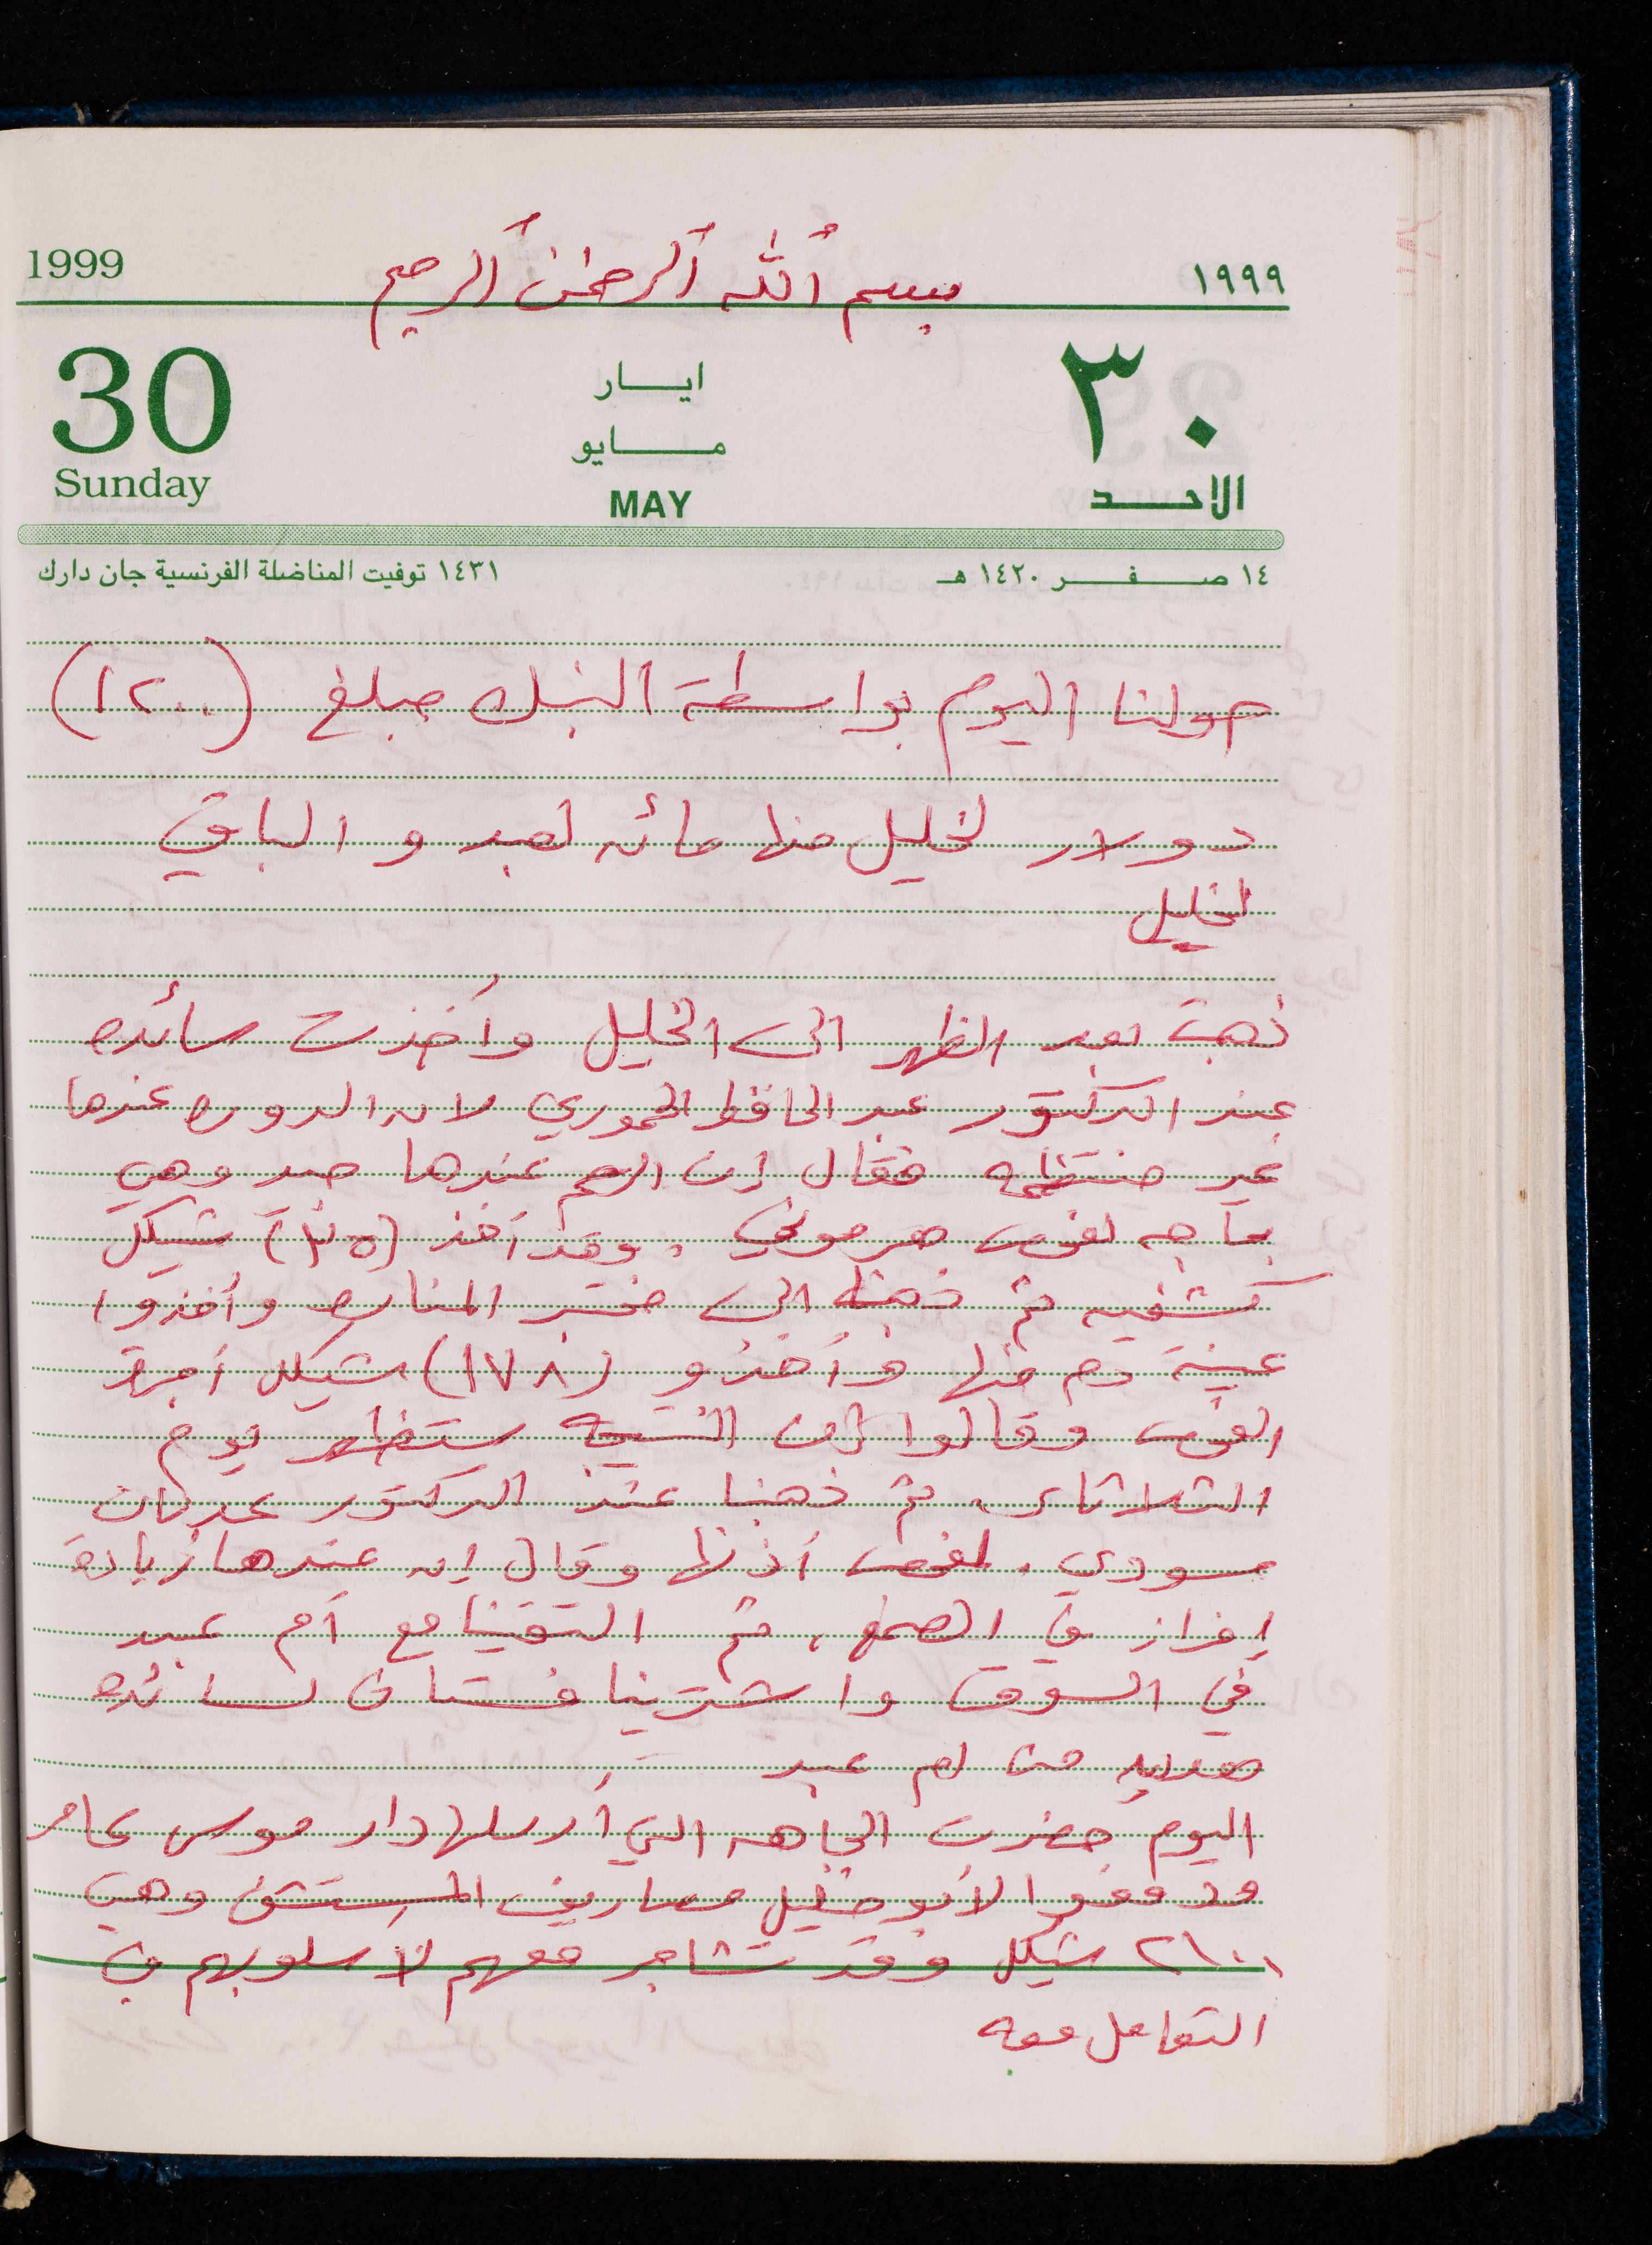 بسم الله الرحمن الرحيم
1999 ١٩٩٩
30 ايار ٣٠
مايو
Sunday MAY الاحد
١٤ صفر ١٤٢٠ هـ ١٤٣١ توفيت المناضلة الفرنسية جان دارك
حولنا اليوم بواسطة البنك مبلغ (١٢٠٠)
دولار لخليل منها مائه لعبد و الباقي
لخليل
ذهبت بعد الظهر الى الخليل وأخذت سائده
عند الدكتور عبد الحافظ الحموري لانه الدوره عندها
غير منتظمه فقال إن الرحم عندها وهي
بحاجه لفحص هرموني . وقد أخذ شيكل
كشفيه ثم ذهبنا الى مختبر المناره وأخذوا
عينة دم منها وأخذو (١٧٨) شيكل أجرة
الفحص وقالوا إن النتيجه ستظهر يوم
الثلاثاء ثم ذهبنا عند الدكتور عدنان
مسودي . لفحص أذنها وقال إنه عندها زيادة
إفراز في الصمغ ، ثم التقينا مع أم عبد
في السوق واشترينا فستان لسائده
هديه من ام عبد
اليوم حضرت الجاهه التي أرسلها دار موسى عامر
ودفعوا لأبو خليل مصاريف المستشفى وهي
٢١٠٠ شيكل وقد تشاجر معهم لأسلوبهم في
التعامل معه